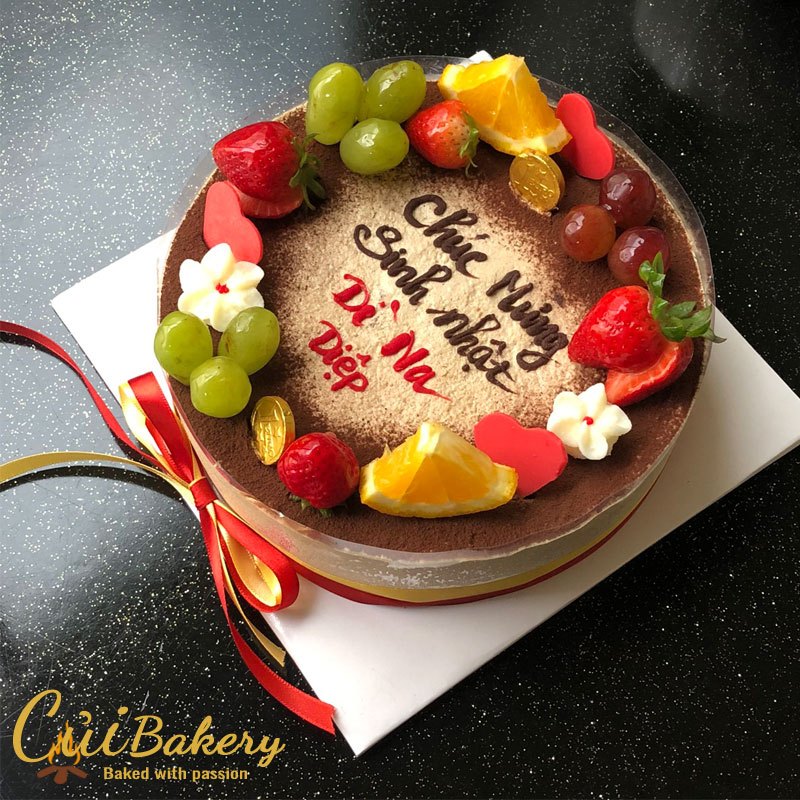 Chúc Mừng
Sinh nhật
Dì Na
Diệp
Củi Bakery
Baked with passion